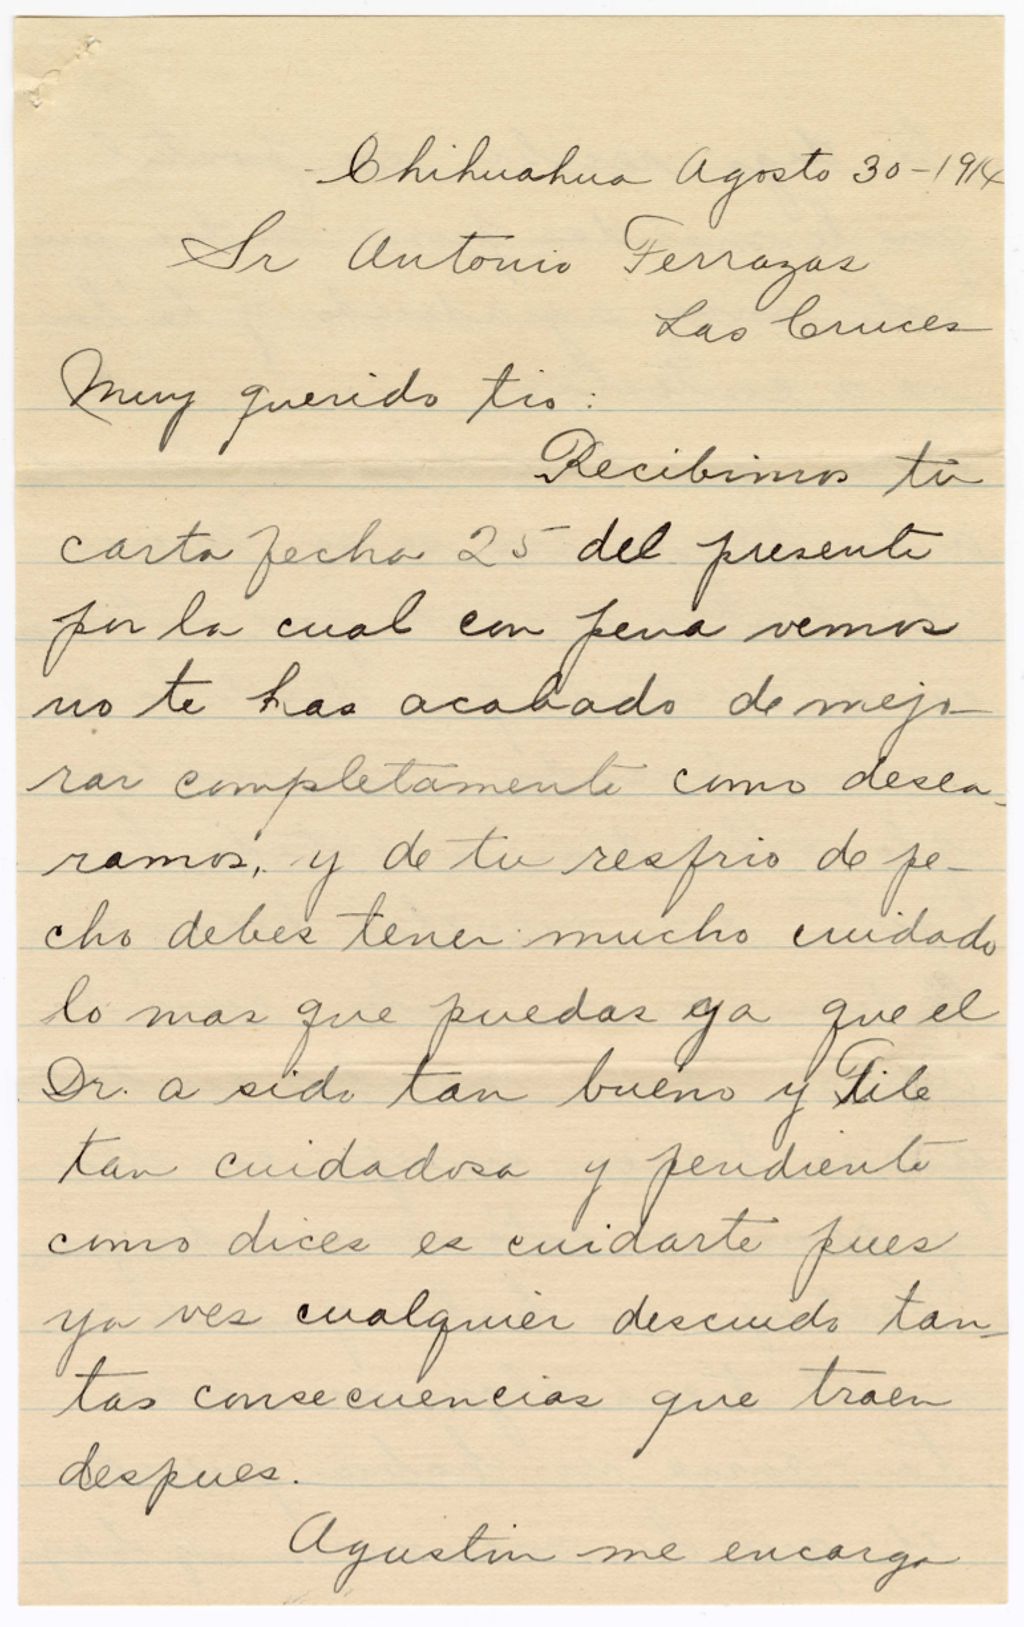 Chihuahua Agosto 30-1914
Sr Antonio Terrazas
Las Cruces
Muy querido tio:
Recibimos tu
carta fecha 25 del presente
por la cual con pena vemos
no te has acabado de mejo-
rar completamente como desea-
ramos, y de tu resfrio de pe-
cho debes tener mucho cuidado
lo mas que puedas ya que el
Dr. a sido tan bueno y Tile
tan cuidadosa y pendiente
como dices es cuidarte pues
ya ves cualquier descuido tan-
tas consecuencias que traen
despues.
Agustin me encarga